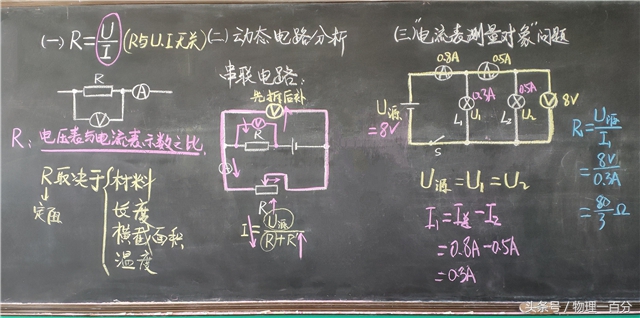 (一) R=U/I (R与U.I无关)
R
A
V
R: 电压表与电流表示数之比
R取决于 材料
长度
横截面积
温度
↓
定值
(二) 动态电路分析
串联电路:
先拆后补
V
V
R
A
R'
I↓=U源/(R+R'↑)
(三)"电流表测量对象"问题
0.8A 0.5A
A A
0.3A 0.5A
U源
=8V
L1 U1 L2 U2
V 8V
S
U源=U1=U2
I1=I总-I2
=0.8A-0.5A
=0.3A
R1=U源/I1
=8V/0.3A
=80/3 Ω
头条号/物理一百分